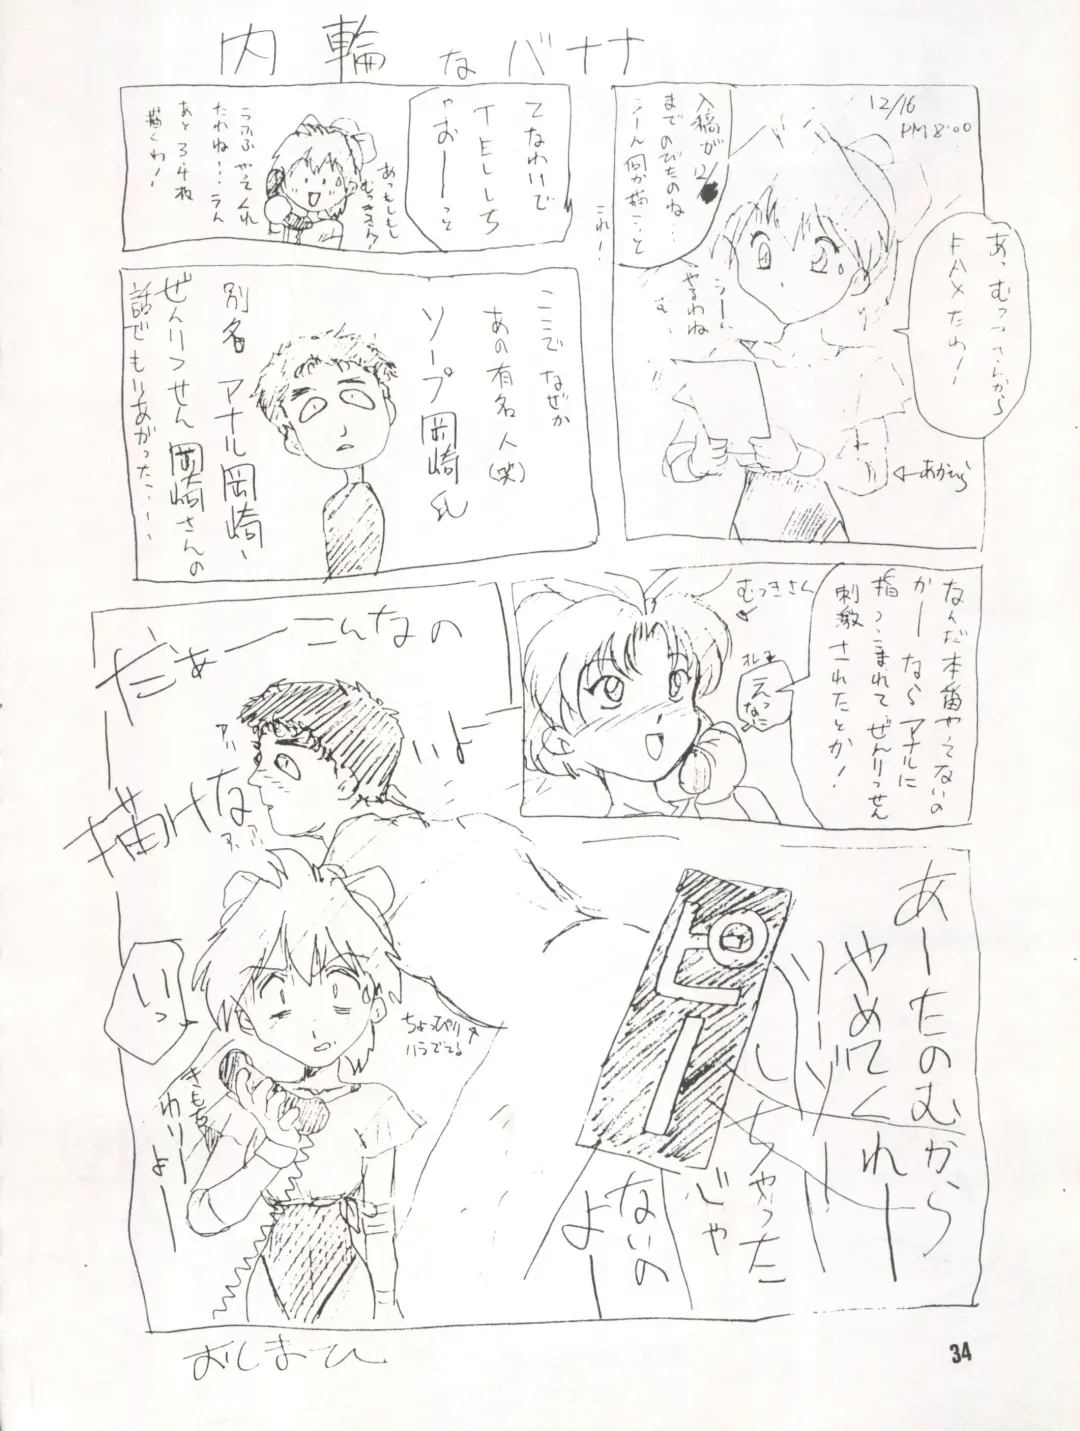 内輪なバナナ
12/16
PM 8:00
入稿が
12/
までのびたのね…
うーん何か描こっと
あ、むつきさんから
FAXだわー
うー
やるわね
む…
これー!
←あかむら
てなわけで
TELしち
ゃおーっと
あっもしもし
むつきさん!
うふふ やってくれ
たわね…うん
あと3、4枚
描くわー!
ここでなぜか
あの有名人(笑)
ソープ岡崎氏
別名アナル岡崎、
ぜんりつせん岡崎さんの
話でもりあがった…!
なんだ本番やってないの
かー ならアナルに
指つっこまれてぜんりつせん
刺激されたとか!
むつきさん
オレは
えっ
なに
だぁーこんなの
いよー
描けな
アッ
アッ
アッ
いっ
きもち
わりー
よー
ちょっぴり
ハラでてる
ピー
あーたのむから
やめてくれー
ソーゾー
しちゃった
じゃ
ないの
よー
おしまひ
34